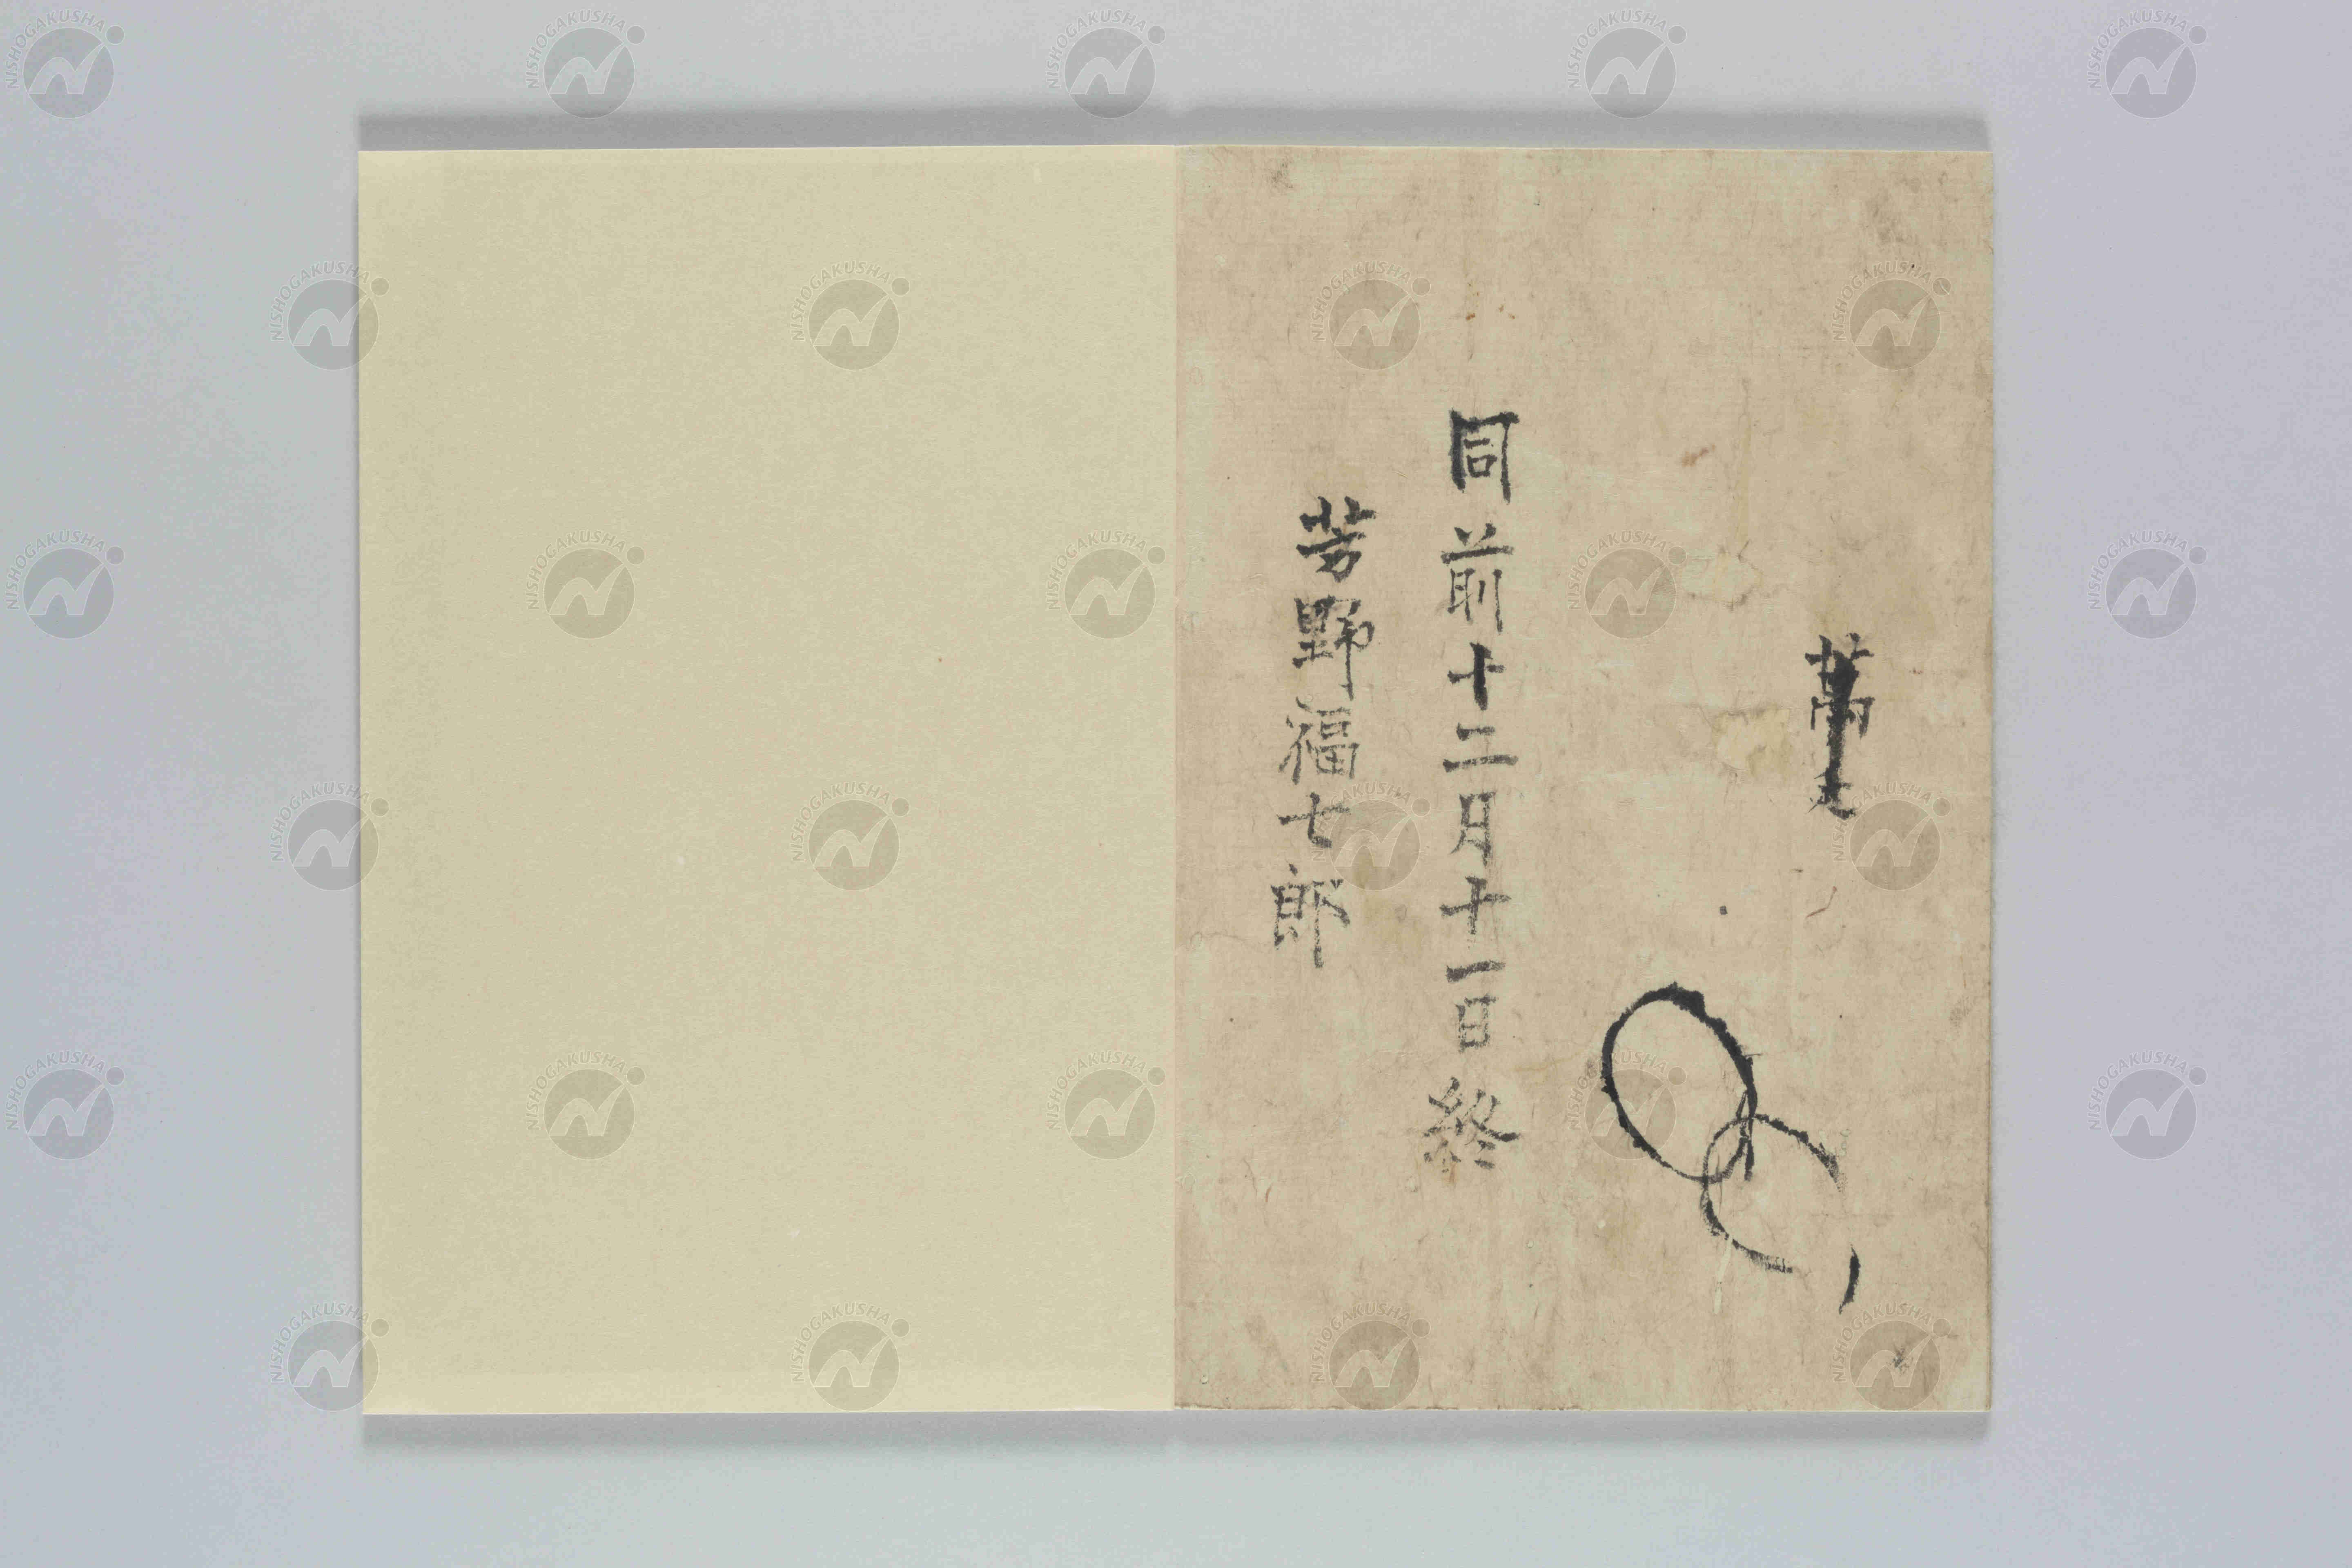 同前十二月十一日終
芳野福七郎
NISHOGAKUSHA